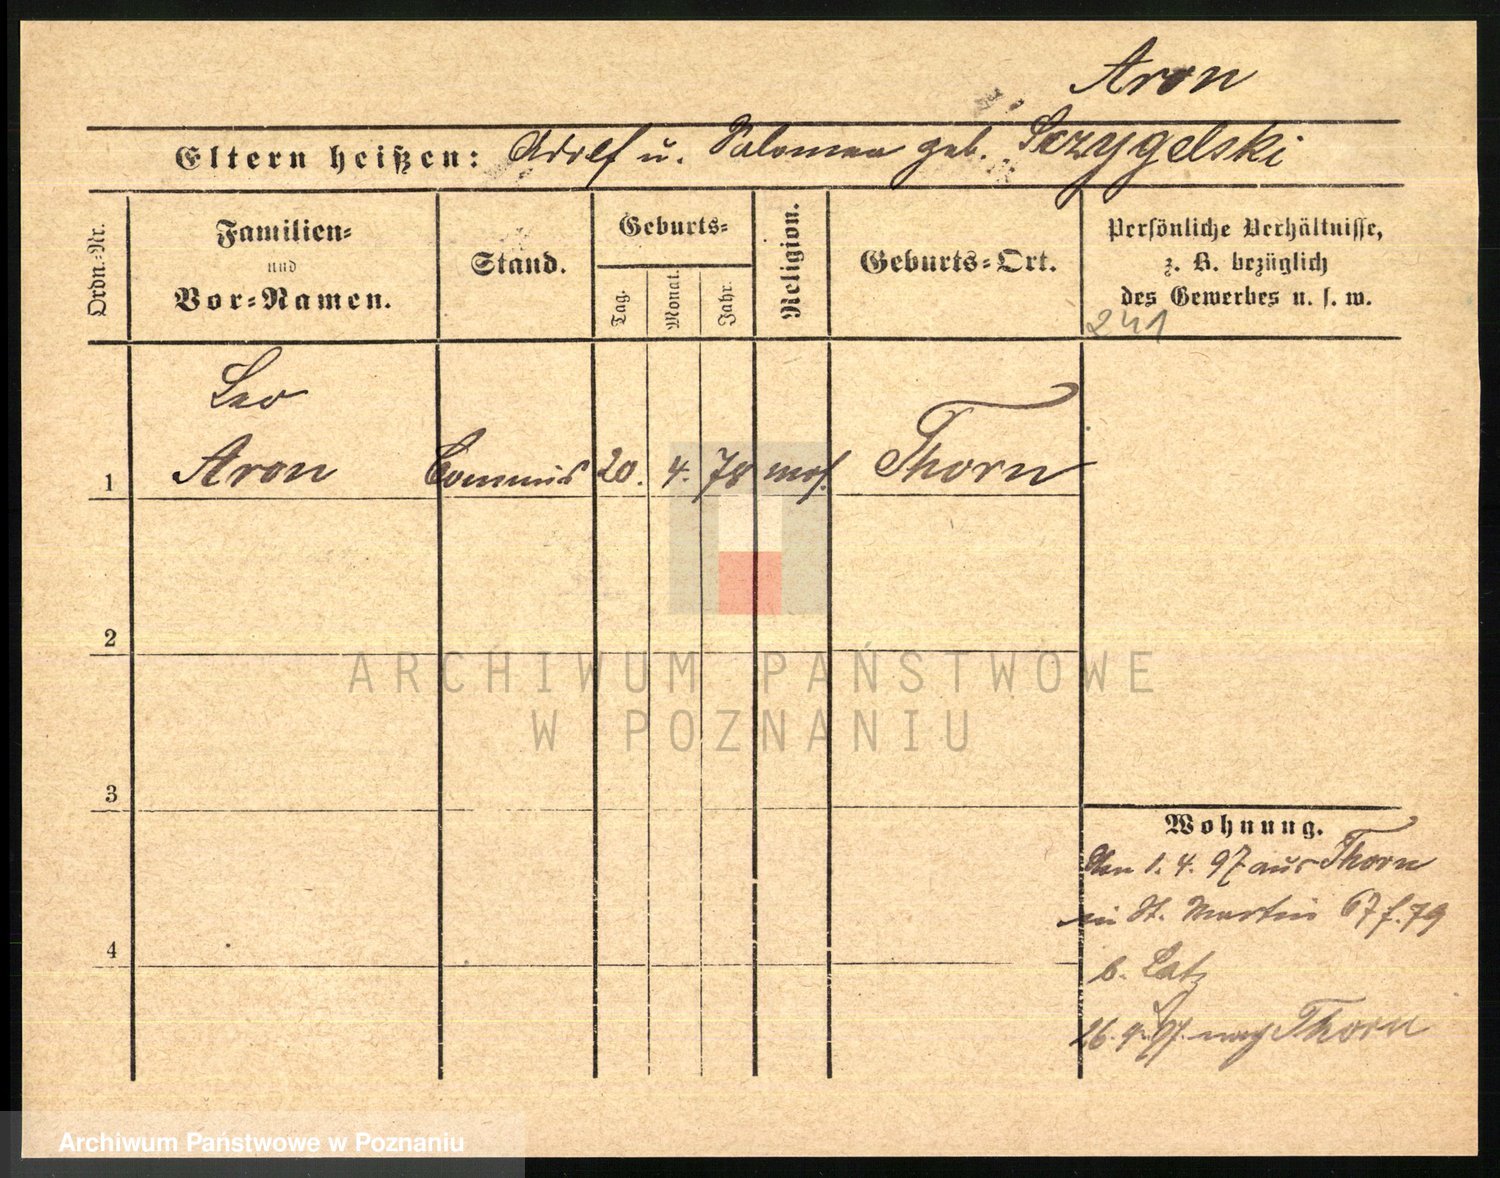 Aron
Eltern heißen: Adolf u. Salomea geb. Szzygelski
Ordn.-Nr.
Familien-
und
Vor-Namen.
Stand.
Geburts-
Tag.
Monat.
Jahr.
Religion.
Geburts-Ort.
Persönliche Verhältnisse,
z. B. bezüglich
des Gewerbes u. s. w.
241
Leo
1 Aron Commis 20. 4. 78 mos. Thorn
2
3
4
Wohnung.
Den 1. 4. 97 aus Thorn
in St. Martin 67 f. 79
b. Latz
26. 4. 97. nach Thorn
ARCHIWUM PAŃSTWOWE
W POZNANIU
Archiwum Państwowe w Poznaniu